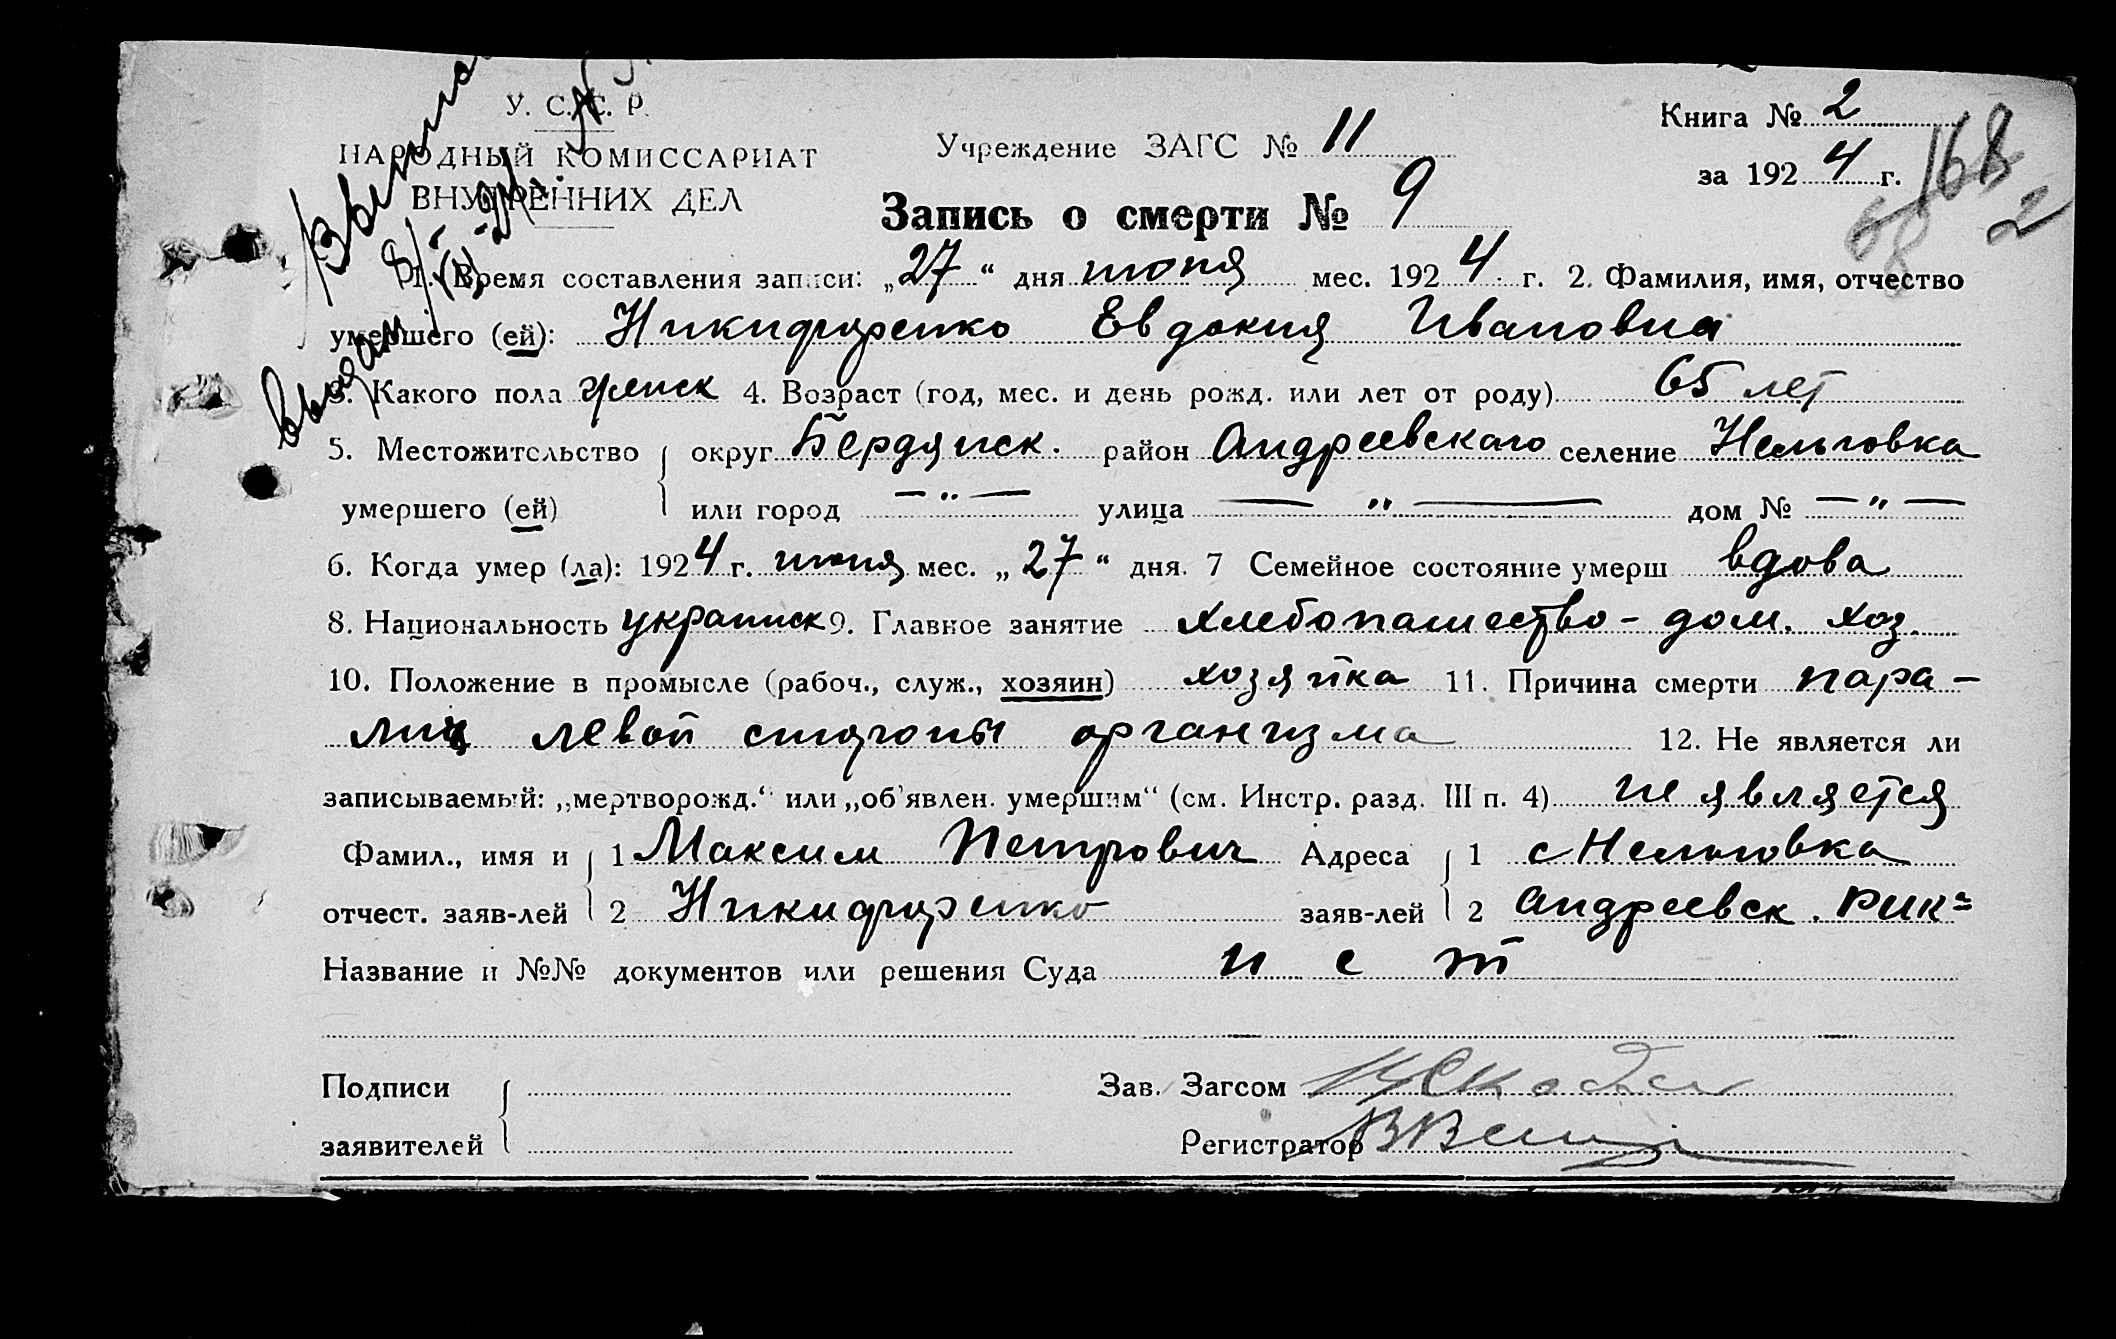 У. С. С. Р.
НАРОДНЫЙ КОМИССАРИАТ
ВНУТРЕННИХ ДЕЛ
Учреждение ЗАГС № 11
Книга № 2
за 1924 г.
168
68 2
Запись о смерти № 9
1. Время составления записи: „27“ дня июня мес. 1924 г. 2. Фамилия, имя, отчество
умершего (ей): Никифоренко Евдокия Ивановна
3. Какого пола женск 4. Возраст (год, мес. и день рожд. или лет от роду) 65 лет
5. Местожительство округ Бердянск. район Андреевского селение Нельговка
умершего (ей) или город — „ — улица — „ — дом № — „ —
6. Когда умер (ла): 1924 г. июня мес. „27“ дня. 7 Семейное состояние умерш вдова
8. Национальность украинск 9. Главное занятие хлебопашество - дом. хоз.
10. Положение в промысле (рабоч., служ., хозяин) хозяйка 11. Причина смерти пара-
лич левой стороны организма 12. Не является ли
записываемый: „мертворожд.“ или „об'явлен. умершим“ (см. Инстр. разд. III п. 4) не является
Фамил., имя и 1 Максим Петрович Адреса 1 с Нельговка
отчест. заяв-лей 2 Никифоренко заяв-лей 2 Андреевск. рик=
Название и №№ документов или решения Суда нет
Подписи Зав. Загсом
заявителей Регистратор